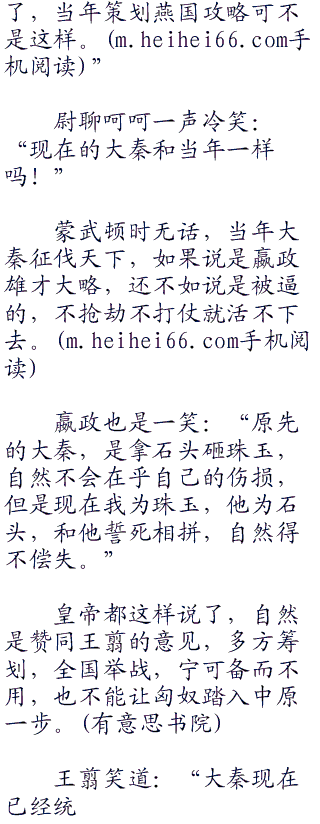 了，当年策划燕国攻略可不
是这样。(m.heihei66.com手
机阅读)”
尉聊呵呵一声冷笑：
“现在的大秦和当年一样
吗！”
蒙武顿时无话，当年大
秦征伐天下，如果说是嬴政
雄才大略，还不如说是被逼
的，不抢劫不打仗就活不下
去。(m.heihei66.com手机阅
读)
嬴政也是一笑：“原先
的大秦，是拿石头砸珠玉，
自然不会在乎自己的伤损，
但是现在我为珠玉，他为石
头，和他誓死相拼，自然得
不偿失。”
皇帝都这样说了，自然
是赞同王翦的意见，多方筹
划，全国举战，宁可备而不
用，也不能让匈奴踏入中原
一步。(有意思书院)
王翦笑道：“大秦现在
已经统